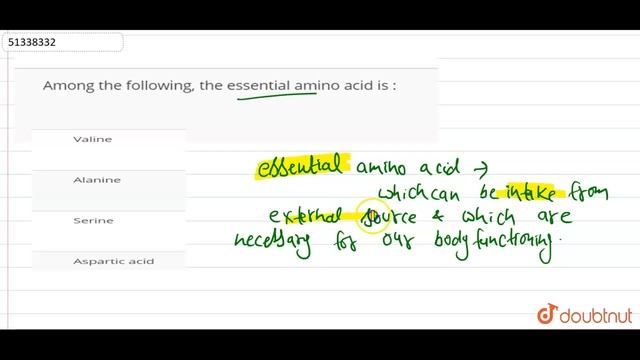 51338332
Among the following, the essential amino acid is :
Valine
Alanine
Serine
Aspartic acid
essential amino acid →
which can be intake from
external source & which are
necessary for our body functioning.
doubtnut